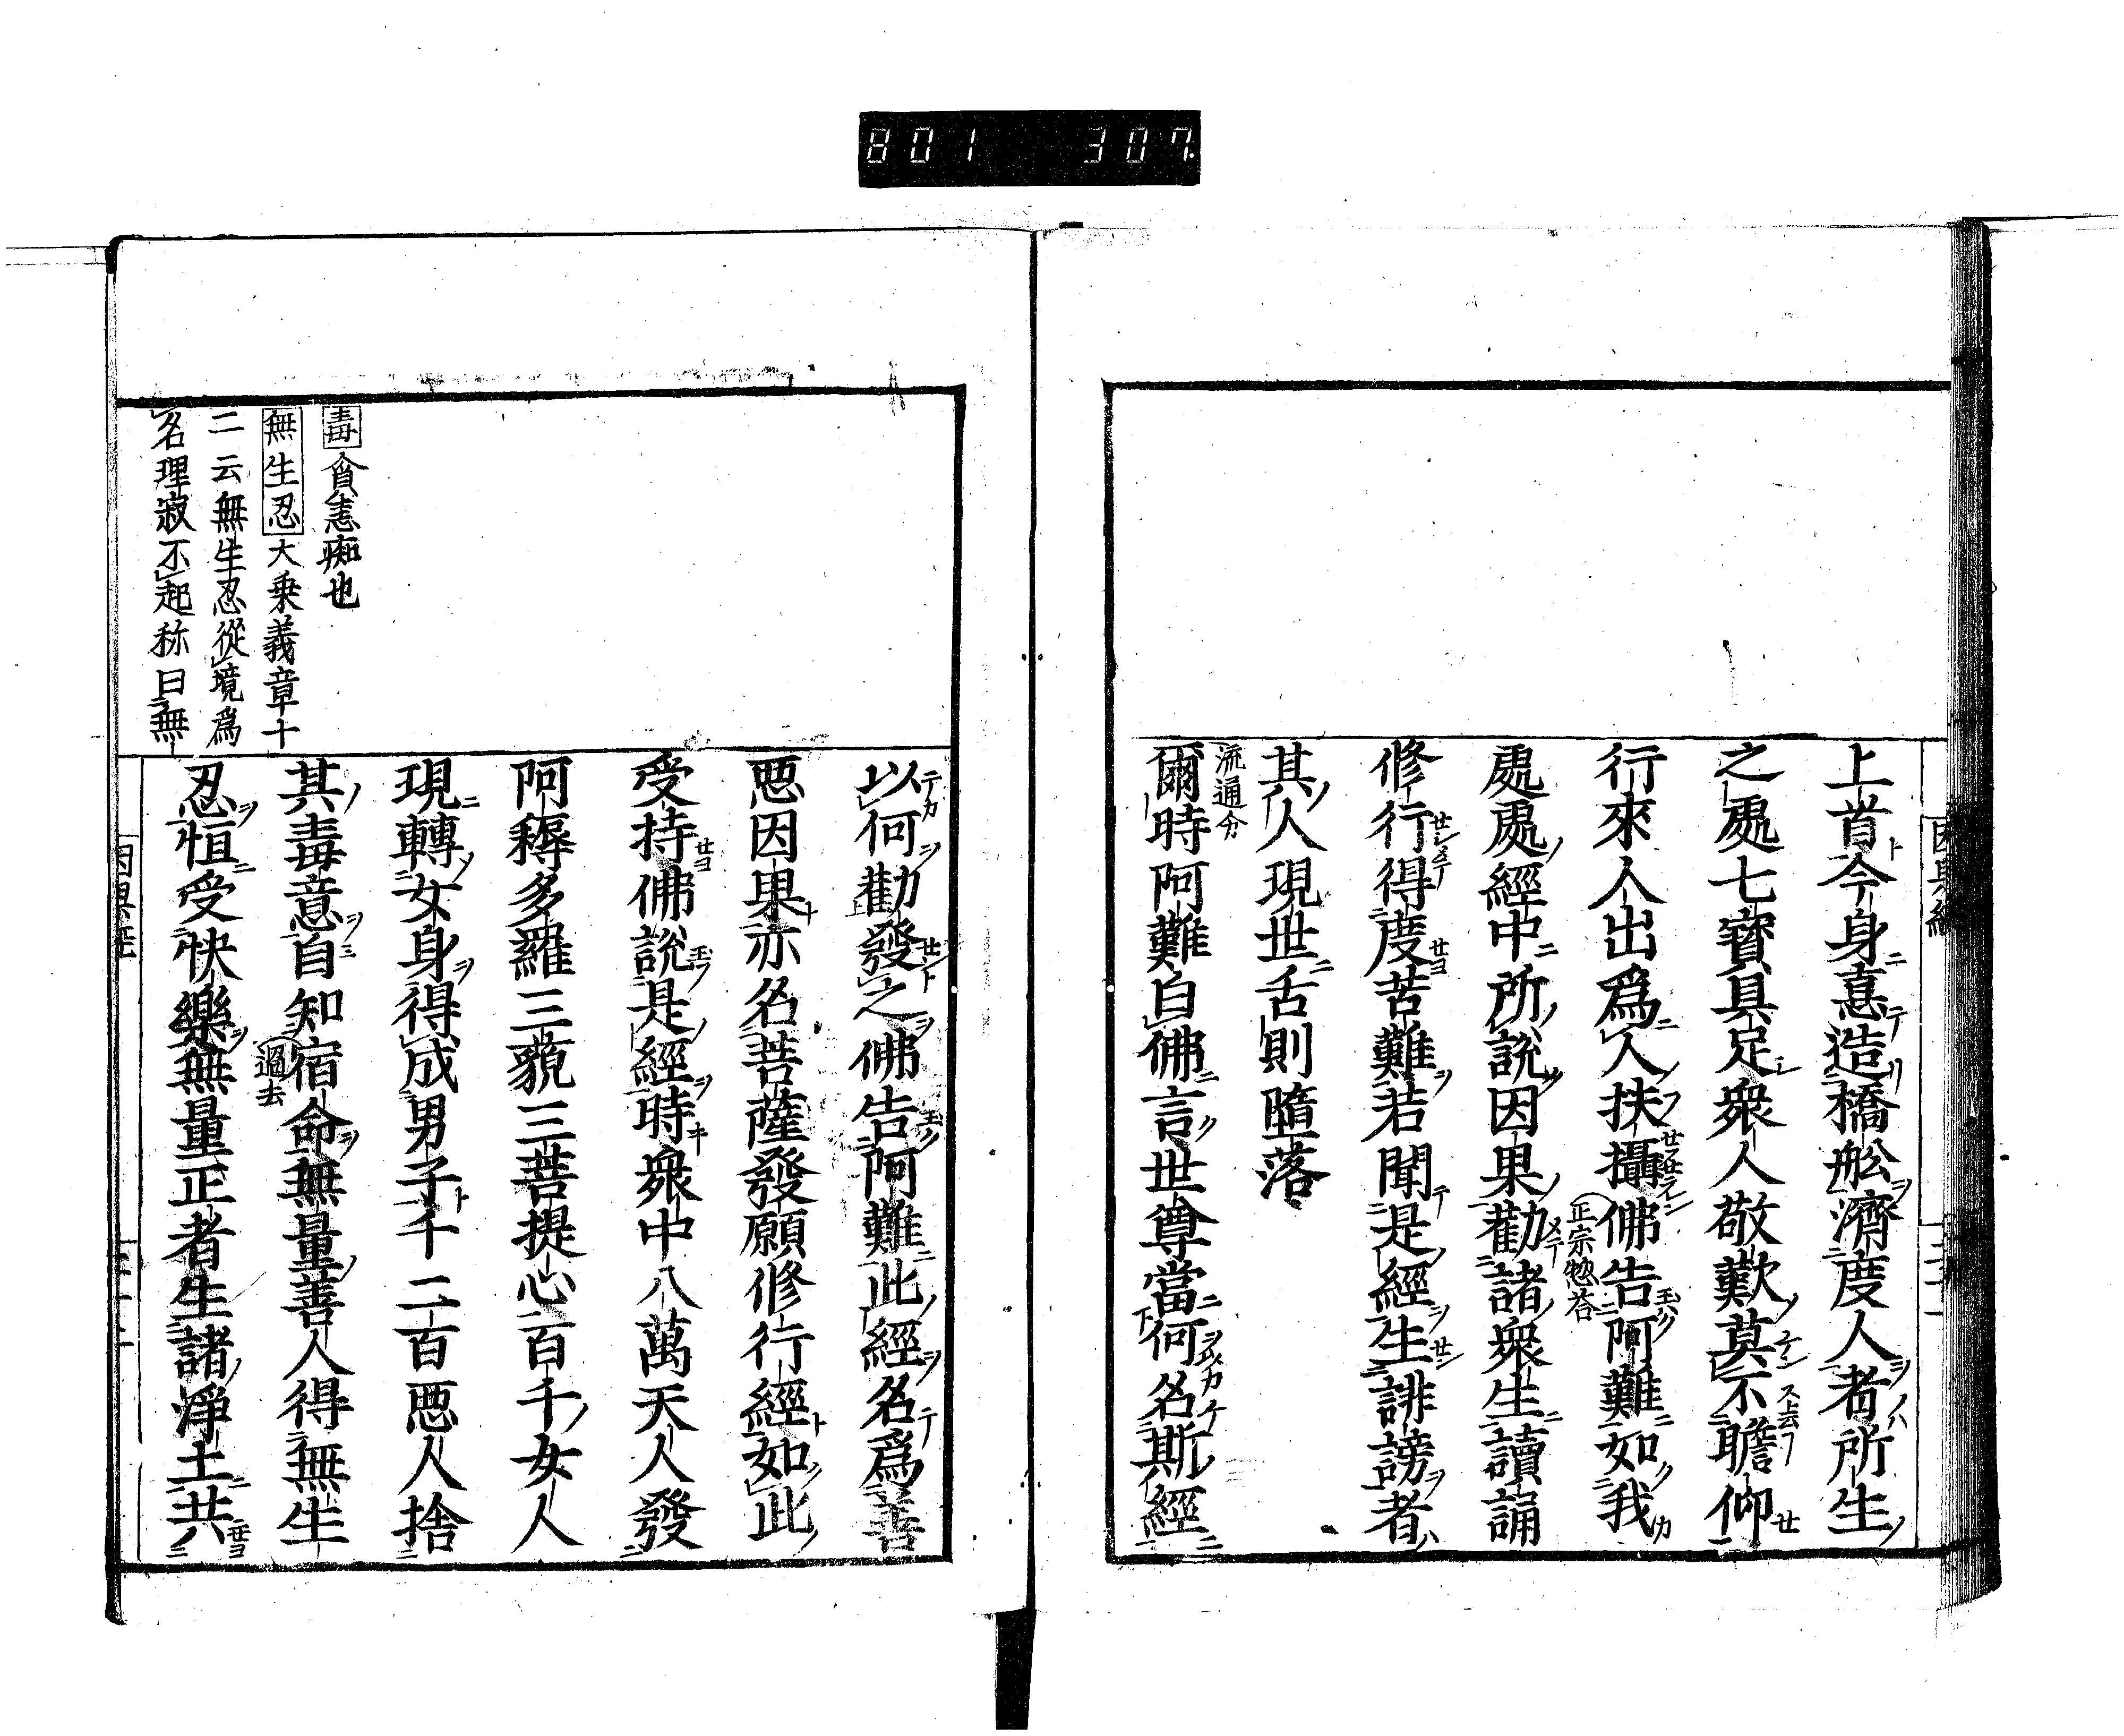 801 307
上首今身憙造橋舩濟度人者所生
之處七寳具足衆人敬歎莫不瞻仰
行來人出爲人扶攝佛告阿難如我
正宗惣荅
處處經中所說因果勸諸衆生讀誦
修行得度苦難若聞是經生誹謗者
其人現世舌則墮落
流通分
爾時阿難白佛言世尊當何名斯經
以何勸發之佛告阿難此經名爲善
惡因果亦名菩薩發願修行經如此
受持佛說是經時衆中八萬天人發
阿耨多羅三藐三菩提心百千女人
現轉女身得成男子千二百惡人捨
其毒意自知宿命無量善人得無生
過去
忍恒受快樂無量正者生諸淨土共
毒貪恚痴也
無生忍大乗義章十
二云無生忍從境爲
名理寂不起称曰無